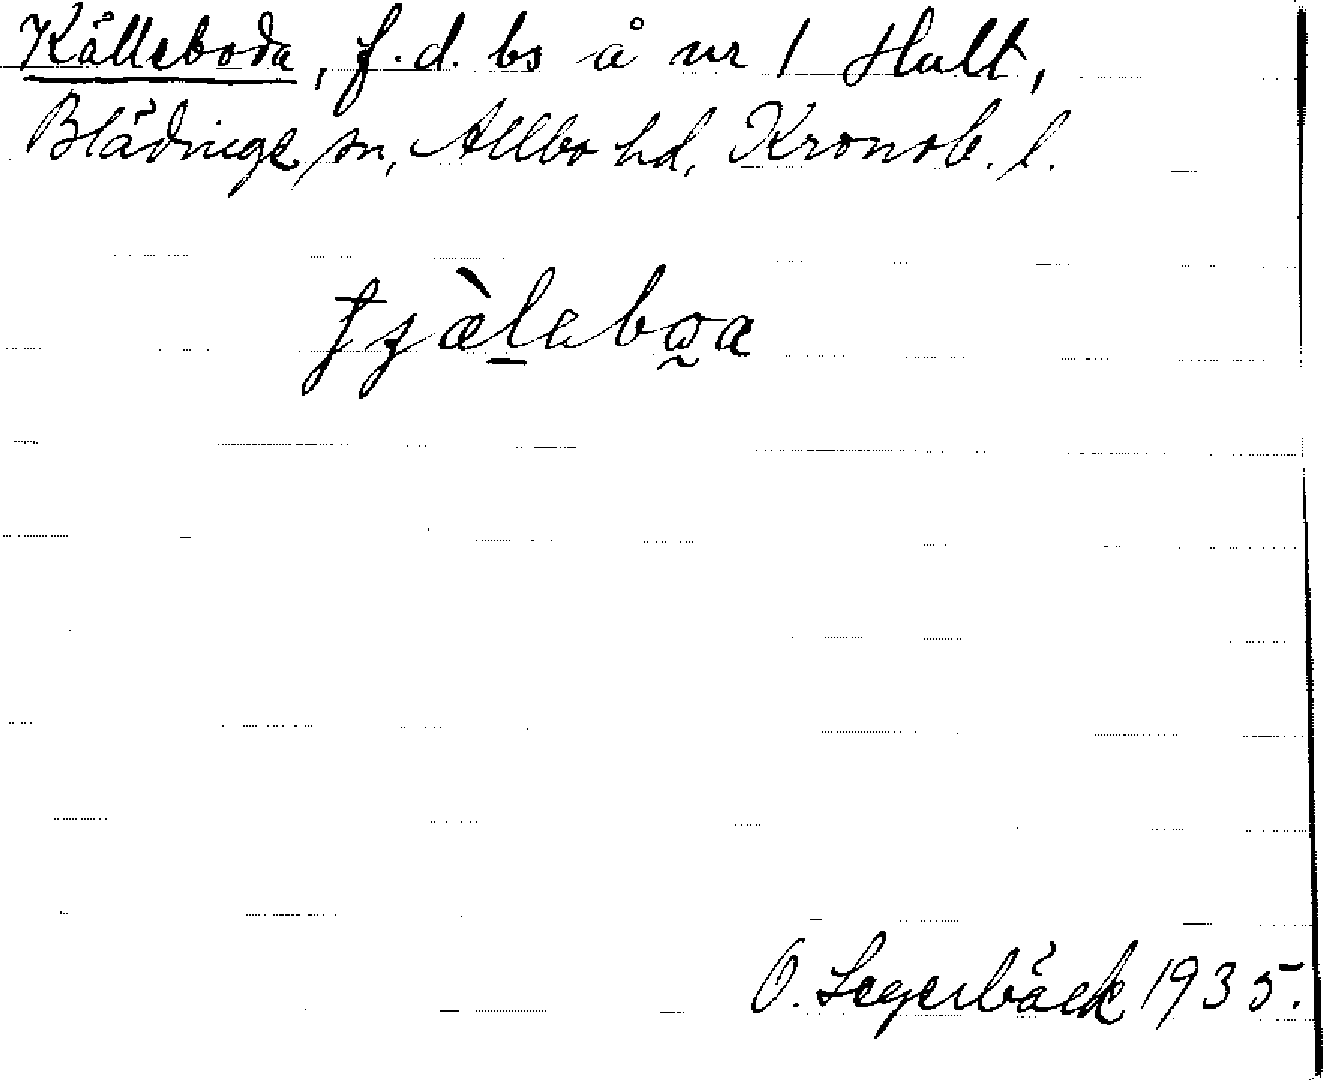 Källeboda, f.d. bs å nr 1 Hult,
Blädinge sn, Allbo hd, Kronob. l.
O. Segerbäck 1935.